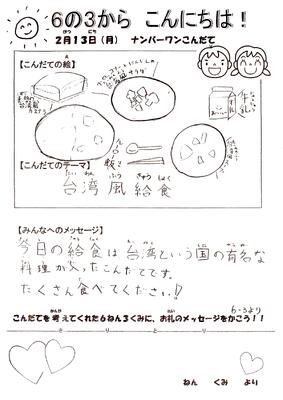 6の3から こんにちは！
2月13日（月） ナンバーワンこんだて
【こんだての絵】
牛乳
ルーロー飯
【こんだてのテーマ】
台湾風給食
【みんなへのメッセージ】
今日の給食は台湾という国の有名な
料理が入ったこんだてです。
たくさん食べてください！
6-3より
こんだてを考えてくれた6ねん3くみに、お礼のメッセージをかこう！！
きりとり
ねん くみ より